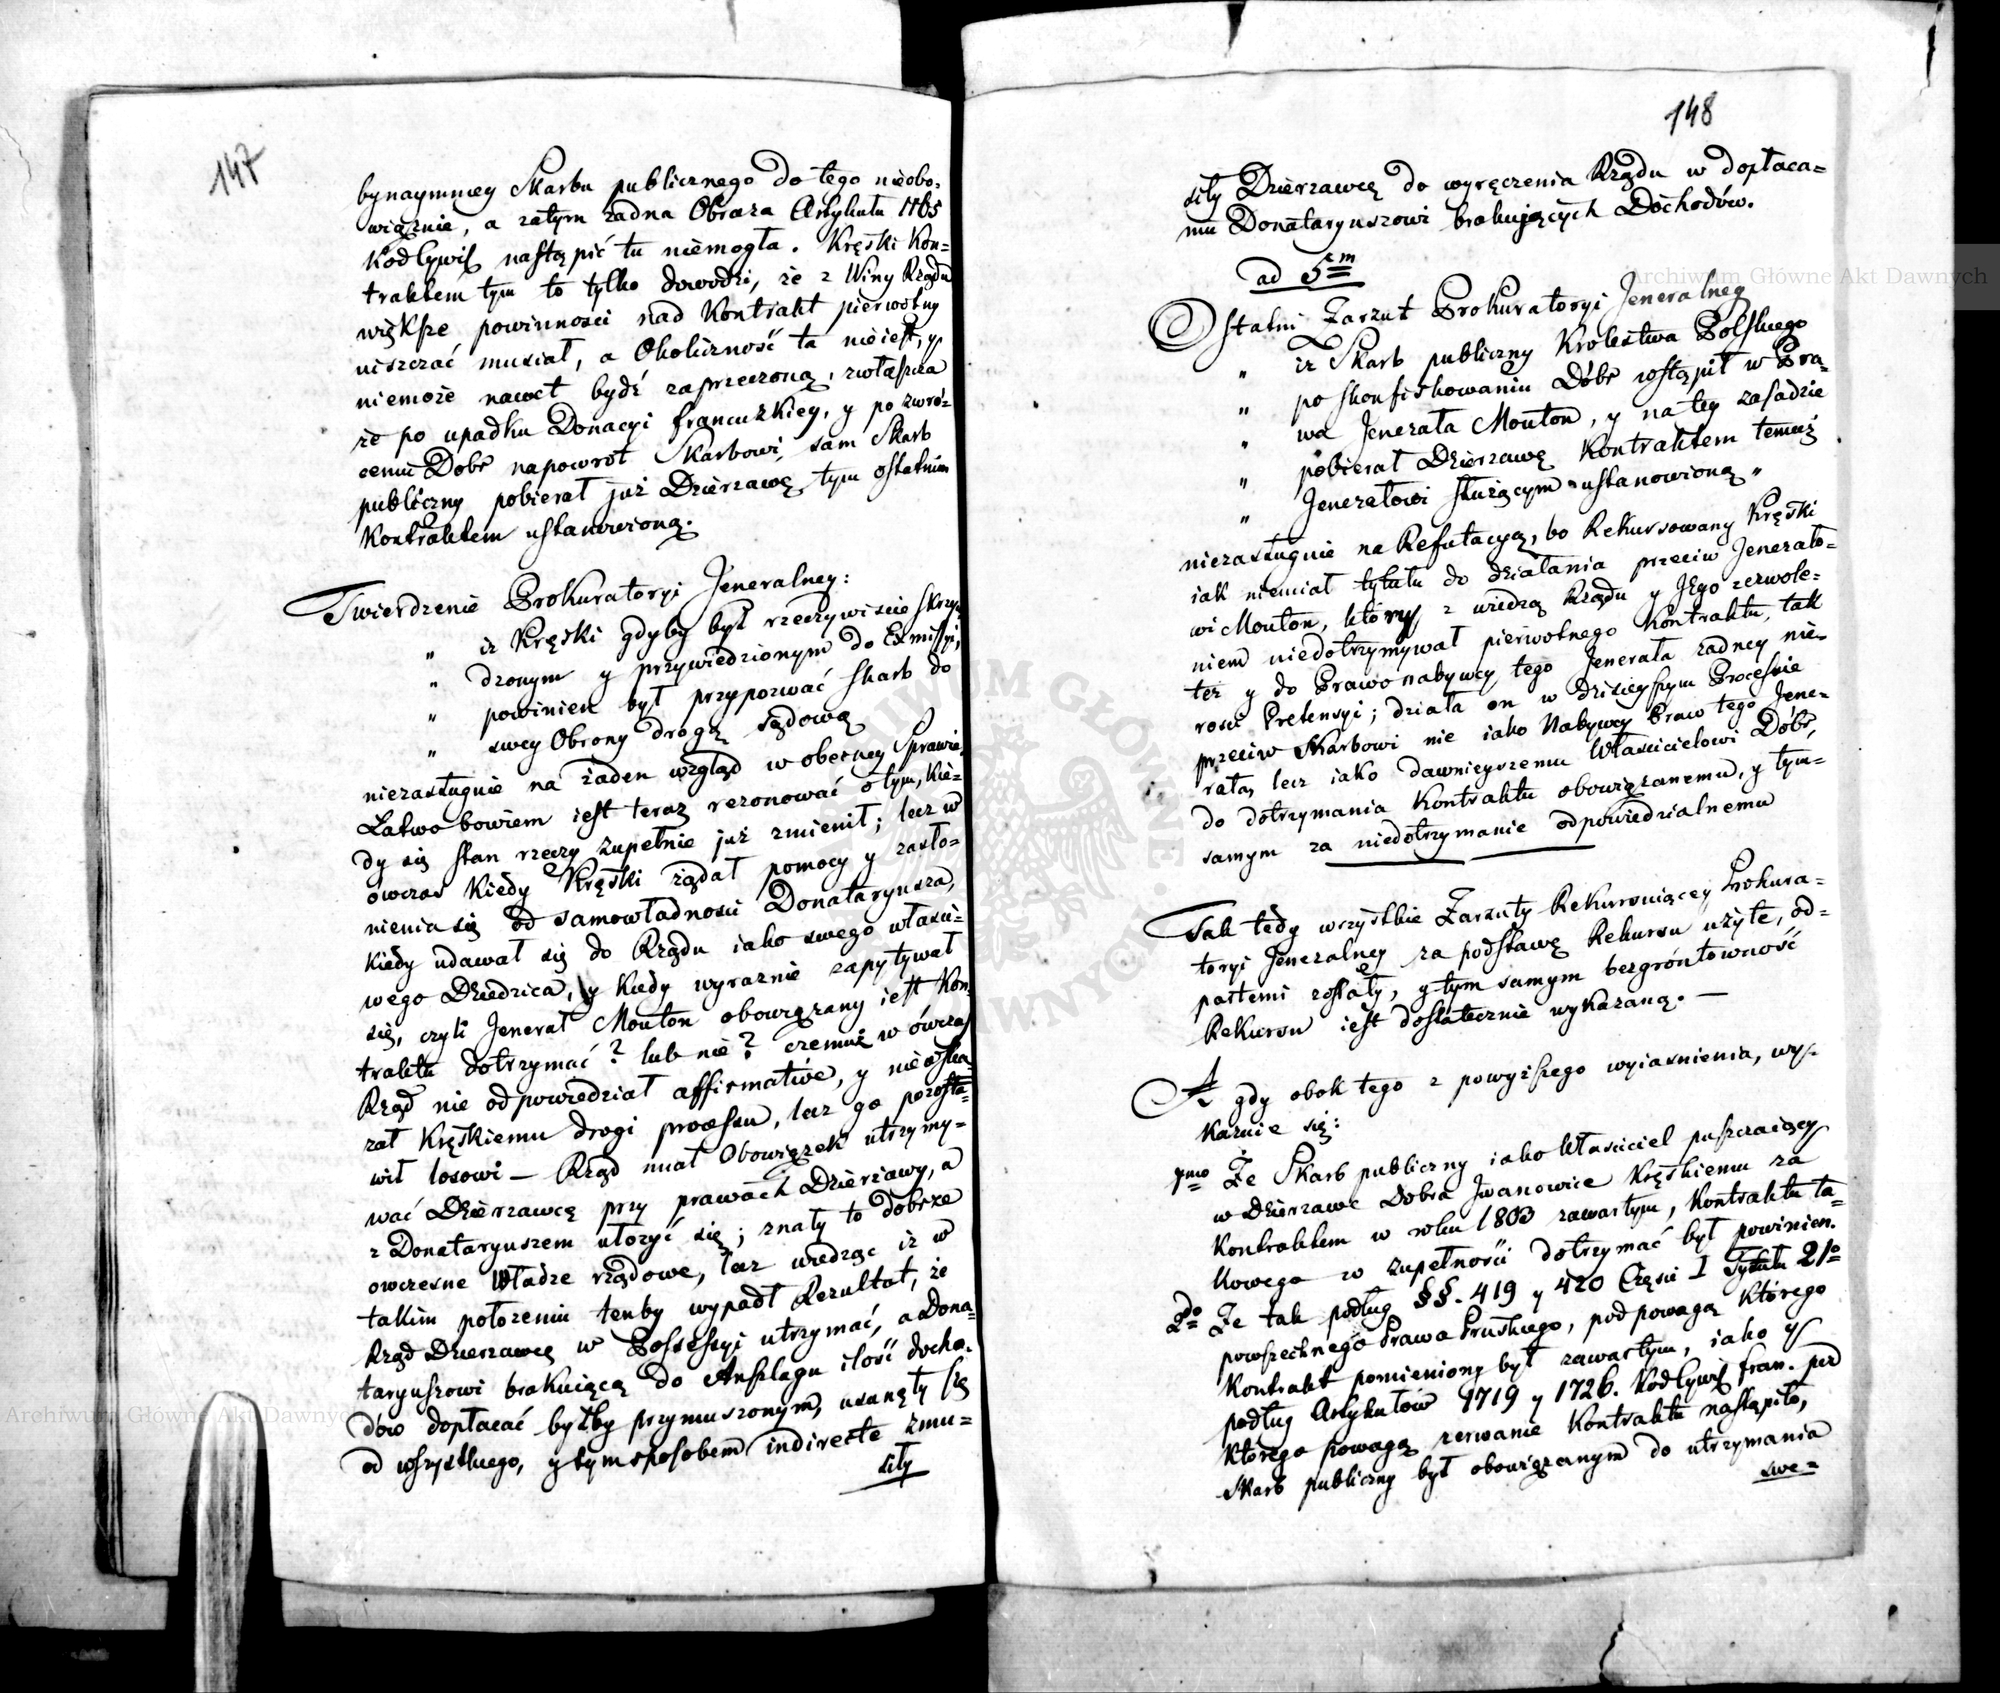 147
bynaymniey Skarbu publicznego do tego nieobo-
wiąznie, a zatym żadna Obraza Artykułu 1165
Kod. Cywil. nastąpić tu niemogła. Kręski Kon-
traktem tym to tylko dowodzi, że z Winy Rządu
większe powinności nad Kontrakt pierwotny
uiszczać musiał, a Okoliczność ta nieiest, y
niemoże nawet bydź zaprzeczoną, zwłaszcza
że po upadku Donacyi francuzkiey, y po zwró-
ceniu Dóbr napowrót Skarbowi, sam Skarb
publiczny pobierał już Dzierzawę tym ostatnim
Kontraktem ustanowioną.
Twierdzenie Prokuratoryi Jeneralney:
„ iż Kręski gdyby był rzeczywiście skrzyw-
„ dzonym y przywiedzionym do Exmissyi,
„ powinien był przypozwać Skarb do
„ swey Obrony drogą sądową
niezasługuie na żaden wzgląd w obecney Sprawie.
Łatwo bowiem iest teraz rezonować o tym, kie-
dy się stan rzeczy zupełnie już zmienił; lecz w
owczas kiedy Kręski żądał pomocy y zasło-
nienia się od samowładności Donataryusza,
kiedy udawał się do Rządu iako swego właści-
wego Dziedzica, y kiedy wyraznie zapytywał
się, czyli Jenerał Mouton obowiązany iest Kon-
traktu dotrzymać? lub nie? czemuż w ówczas
Rząd nie odpowiedział affirmative, y nie wska-
zał Kręskiemu drogi processu, lecz go pozosta-
wił losowi — Rząd miał Obowiązek utrzymy-
wać Dzierzawcę przy prawach Dzierzawy, a
z Donataryuszem ułożyć się; znały to dobrze
owczesne Władze rządowe, lecz wiedząc iż w
takim położeniu tenby wypadł Rezultat, że
Rząd Dzierzawcę w Possessyi utrzymać, a Dona-
taryuszowi brakuiącą do Anszlagu ilość docho-
dów dopłacać byłby przymuszonym, usunęły się
od wszystkiego, y tym sposobem indirecte zmu-
siły
148
siły Dzierzawcę do wyręczenia Rządu w dopłaca-
niu Donataryuszowi brakujących Dochodów.
ad 5tm
Ostatni Zarzut Prokuratoryi Jeneralney
„ iż Skarb publiczny Krolestwa Polskiego
„ po skonfiskowaniu Dóbr wstąpił w Pra-
„ wa Jenerała Mouton, y na tey zasadzie
„ pobierał Dzierzawę Kontraktem temuż
„ Jenerałowi służącym ustanowioną „
niezasługuie na Refutacyą, bo Rekursowany Kręski
iak niemiał tytułu do działania przeciw Jenerało-
wi Mouton, który z wiedzą Rządu y Jego zezwole-
niem niedotrzymywał pierwotnego Kontraktu, tak
też y do Prawonabywcy tego Jenerała żadney nie-
rosci Pretensyi; działa on w dzisieyszym Processie
przeciw Skarbowi nie iako Nabywcy Praw tego Jene-
rała, lecz iako dawnieyszemu Właścicielowi Dóbr,
do dotrzymania Kontraktu obowiązanemu, y tym-
samym za niedotrzymanie odpowiedzialnemu
Tak tedy wszystkie Zarzuty Rekursuiącey Prokura-
toryi Jeneralney za podstawę Rekursu użyte, od-
partemi zostały, y tym samym bezgróntowność
Rekursu iest dostatecznie wykazaną. —
A gdy obok tego z powyższego wyiasnienia, wy-
kazuie się:
1mo Że Skarb publiczny iako Właściciel puszczaiący
w Dzierzawę Dobra Jwanowice Kręskiemu za
Kontraktem w roku 1803 zawartym, Kontraktu ta-
kowego w zupełności dotrzymać był powinien.
2do Że tak podług §§. 419 y 420 Części I Tytułu 21o
powszechnego Prawa Pruskiego, pod powagą którego
Kontrakt pomieniony był zawartym, iako y
podług Artykułów 1719 y 1726. Kod. Cywil. fran. pod
którego powagą zerwanie Kontraktu nastąpiło,
Skarb publiczny był obowiązanym do utrzymania
swe-
Archiwum Główne Akt Dawnych
Archiwum Główne Akt Dawnych